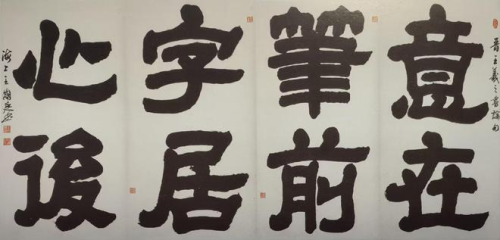 意在
筆前
字居
心後
晋王羲之書論句